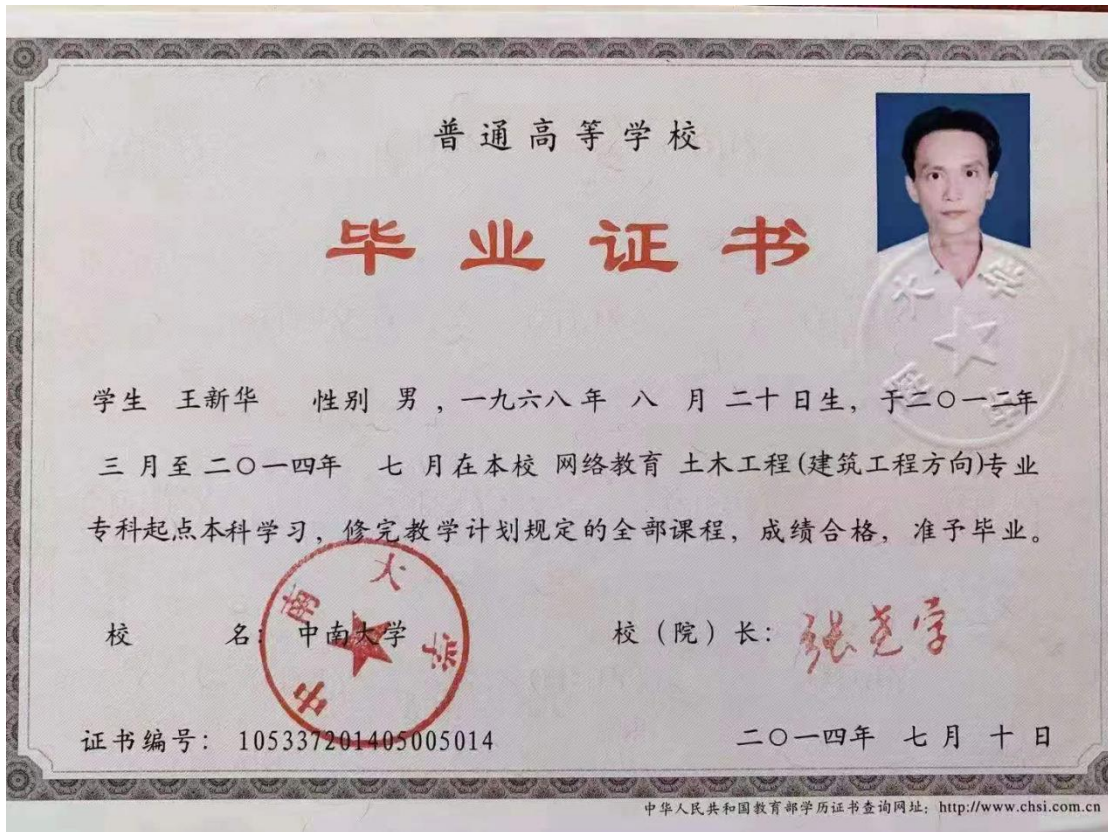 普通高等学校
毕业证书
学生 王新华 性别 男 ，一九六八年 八 月 二十 日生，于二〇一二年
三 月至 二〇一四年 七 月在本校 网络教育 土木工程(建筑工程方向)专业
专科起点本科学习，修完教学计划规定的全部课程，成绩合格，准予毕业。
校 名：中南大学 校（院）长：张尧学
中南大学
证书编号：105337201405005014 二〇一四年 七 月 十 日
中华人民共和国教育部学历证书查询网址：http://www.chsi.com.cn